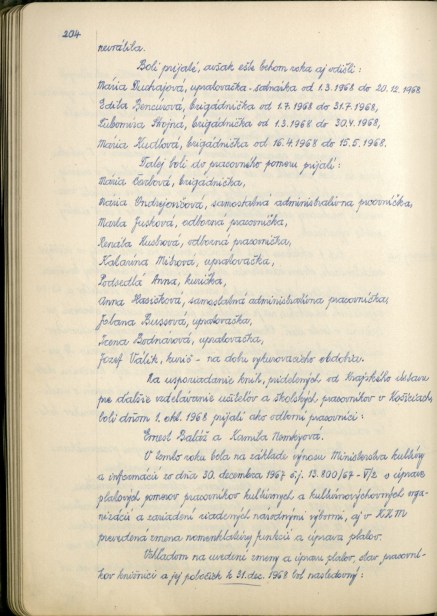 204
nevrátila.
Boli prijaté, avšak ešte behom roka aj odišli:
Mária Duchajová, upratovačka - sadnaska od 1.3.1968 do 20.12.1968
Edita Bencúová, brigádnička od 1.7.1968 do 31.7.1968,
Ľubomíra Strojná, brigádnička od 1.3.1968 do 30.4.1968,
Mária Kudlová, brigádnička od 16.4.1968 do 15.5.1968.
Ďalej boli do pracovného pomeru prijatí:
Mária Čarbová, brigádnička,
Mária Ondrejovičová, samostatná administratívna pracovníčka,
Marta Jusková, odborná pracovníčka,
Renáta Kušnová, odborná pracovníčka,
Katarína Mitrová, upratovačka,
Podsedlá Anna, kurička,
Anna Hasičková, samostatná administratívna pracovníčka,
Jolana Bussová, upratovačka,
Irena Bodnárová, upratovačka,
Jozef Valik, kurič - na dobu vykurovacieho obdobia.
Na usporiadanie kníh, pridelených od Krajského ústavu
pre ďalšie vzdelávanie učiteľov a školských pracovníkov v Košiciach,
boli dňom 1. okt. 1968 prijatí ako odborní pracovníci:
Ernest Baláž a Kamila Nemkyová.
V tomto roku bola na základe výnosu Ministerstva kultúry
a informácií zo dňa 30. decembra 1967 č.j. 13.800/67-V/2 o úprave
platových pomerov pracovníkov kultúrnych a kultúrnovýchovných orga-
nizácií a zariadení riadených národnými výbormi, aj v KKM
prevedená zmena nomenklatúry funkcií a úprava platov.
Vzhľadom na uvedené zmeny a úpravu platov, stav pracovní-
kov knižnice a jej pobočiek k 31. dec. 1968 bol nasledovný: